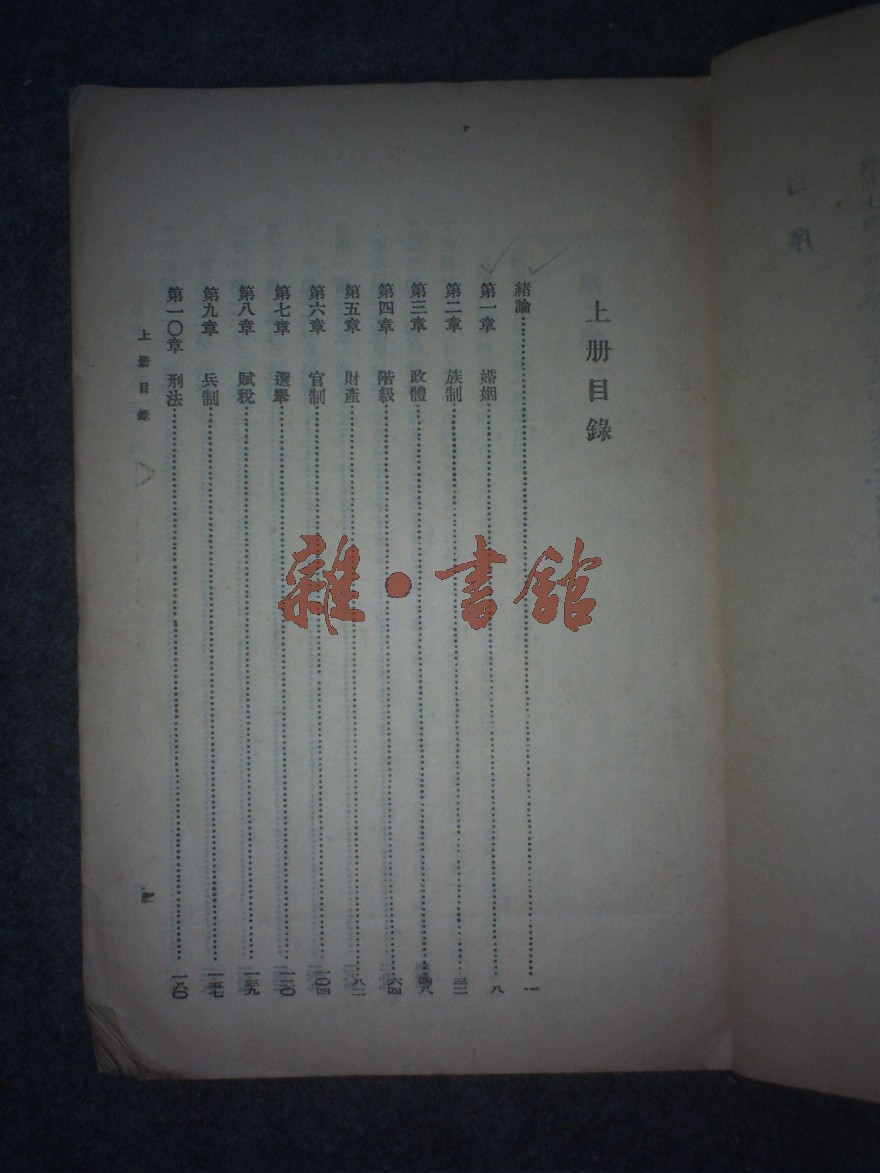 上册目錄
緒論……一
第一章 婚姻……八
第二章 族制……三二
第三章 政體……四八
第四章 階級……六四
第五章 財產……八二
第六章 官制……一〇四
第七章 選舉……一二〇
第八章 賦稅……一三九
第九章 兵制……一五七
第一〇章 刑法……一八〇
上册目錄
雜·書館